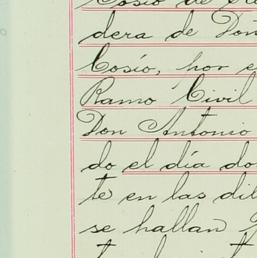 Cosío de
dera de Don
Cosío, hor e
Ramo Civil
Don Antonio
do el día do
te en las dil
se hallan